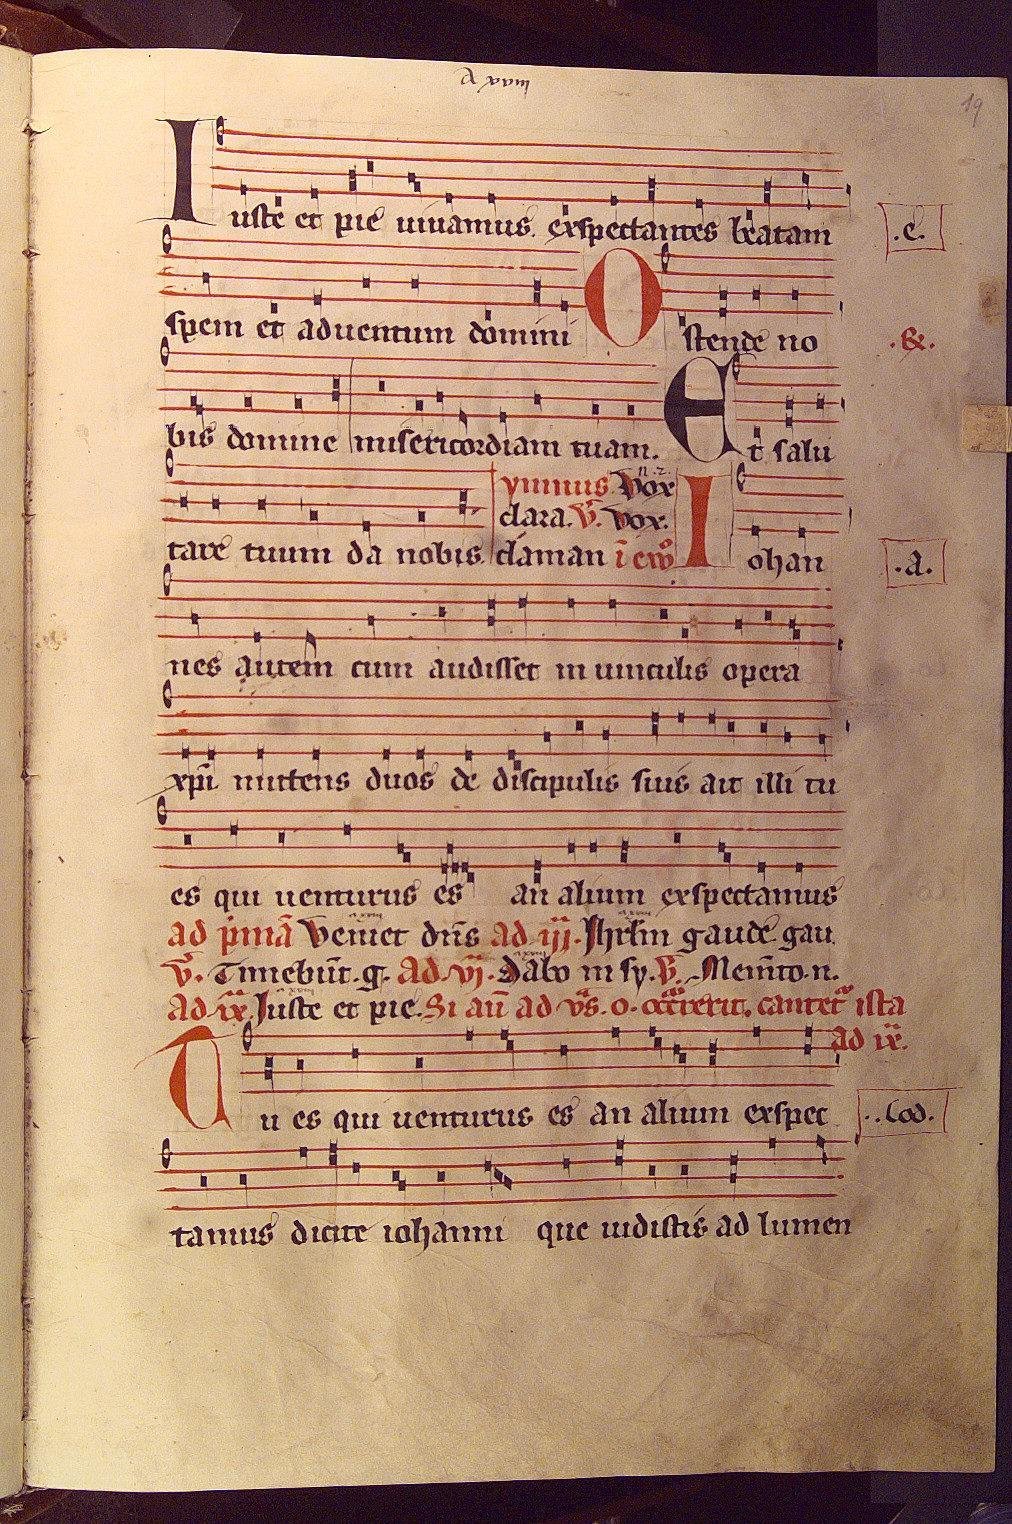 A xviij
19
Iuste et pie uiuamus. exspectantes beatam .e.
spem et aduentum domini Ostende no .&.
bis domine misericordiam tuam. Et salu
tare tuum da nobis.
ymnus Vox
clara. V. Vox.
claman
Iohan .a.
nes autem cum audisset in uinculis opera
xpi mittens duos de discipulis suis ait illi tu
es qui uenturus es an alium exspectamus
ad pmā Veniet dns ad iij. Jhrlm gaude gau
V. Timebūt. g. Ad. vj. Dabo in sy. V. Memto. n.
ad ix. Juste et pie. Si aū ad vs. o. cantet ista
ad ix.
Tu es qui uenturus es an alium exspec
tamus dicite iohanni que uidistis ad lumen